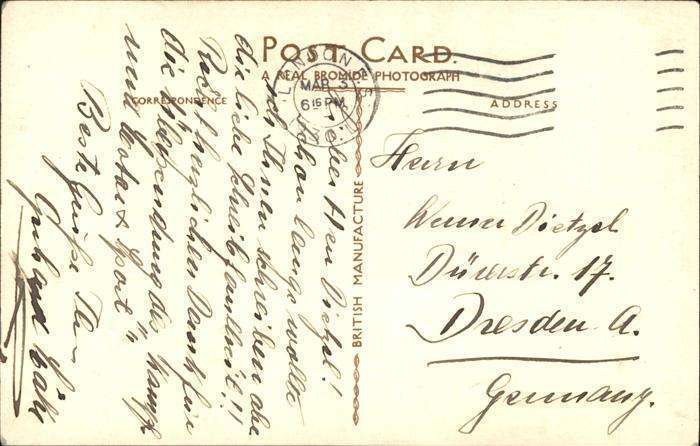 POST CARD.
A REAL BROMIDE PHOTOGRAPH
CORRESPONDENCE
ADDRESS
LONDON
MAR 3
6 15 PM
BRITISH MANUFACTURE
Lieber Herr Dietzel!
Schon lange wollte
ich Ihnen schreiben aber
die liebe Schreibfaulheit!!
Recht herzlichen Dank für
die Übersendung der
und Motor & Sport".
Beste Grüße Ihr
Herrn
Werner Dietzel
Dürerstr. 17.
Dresden A.
Germany.